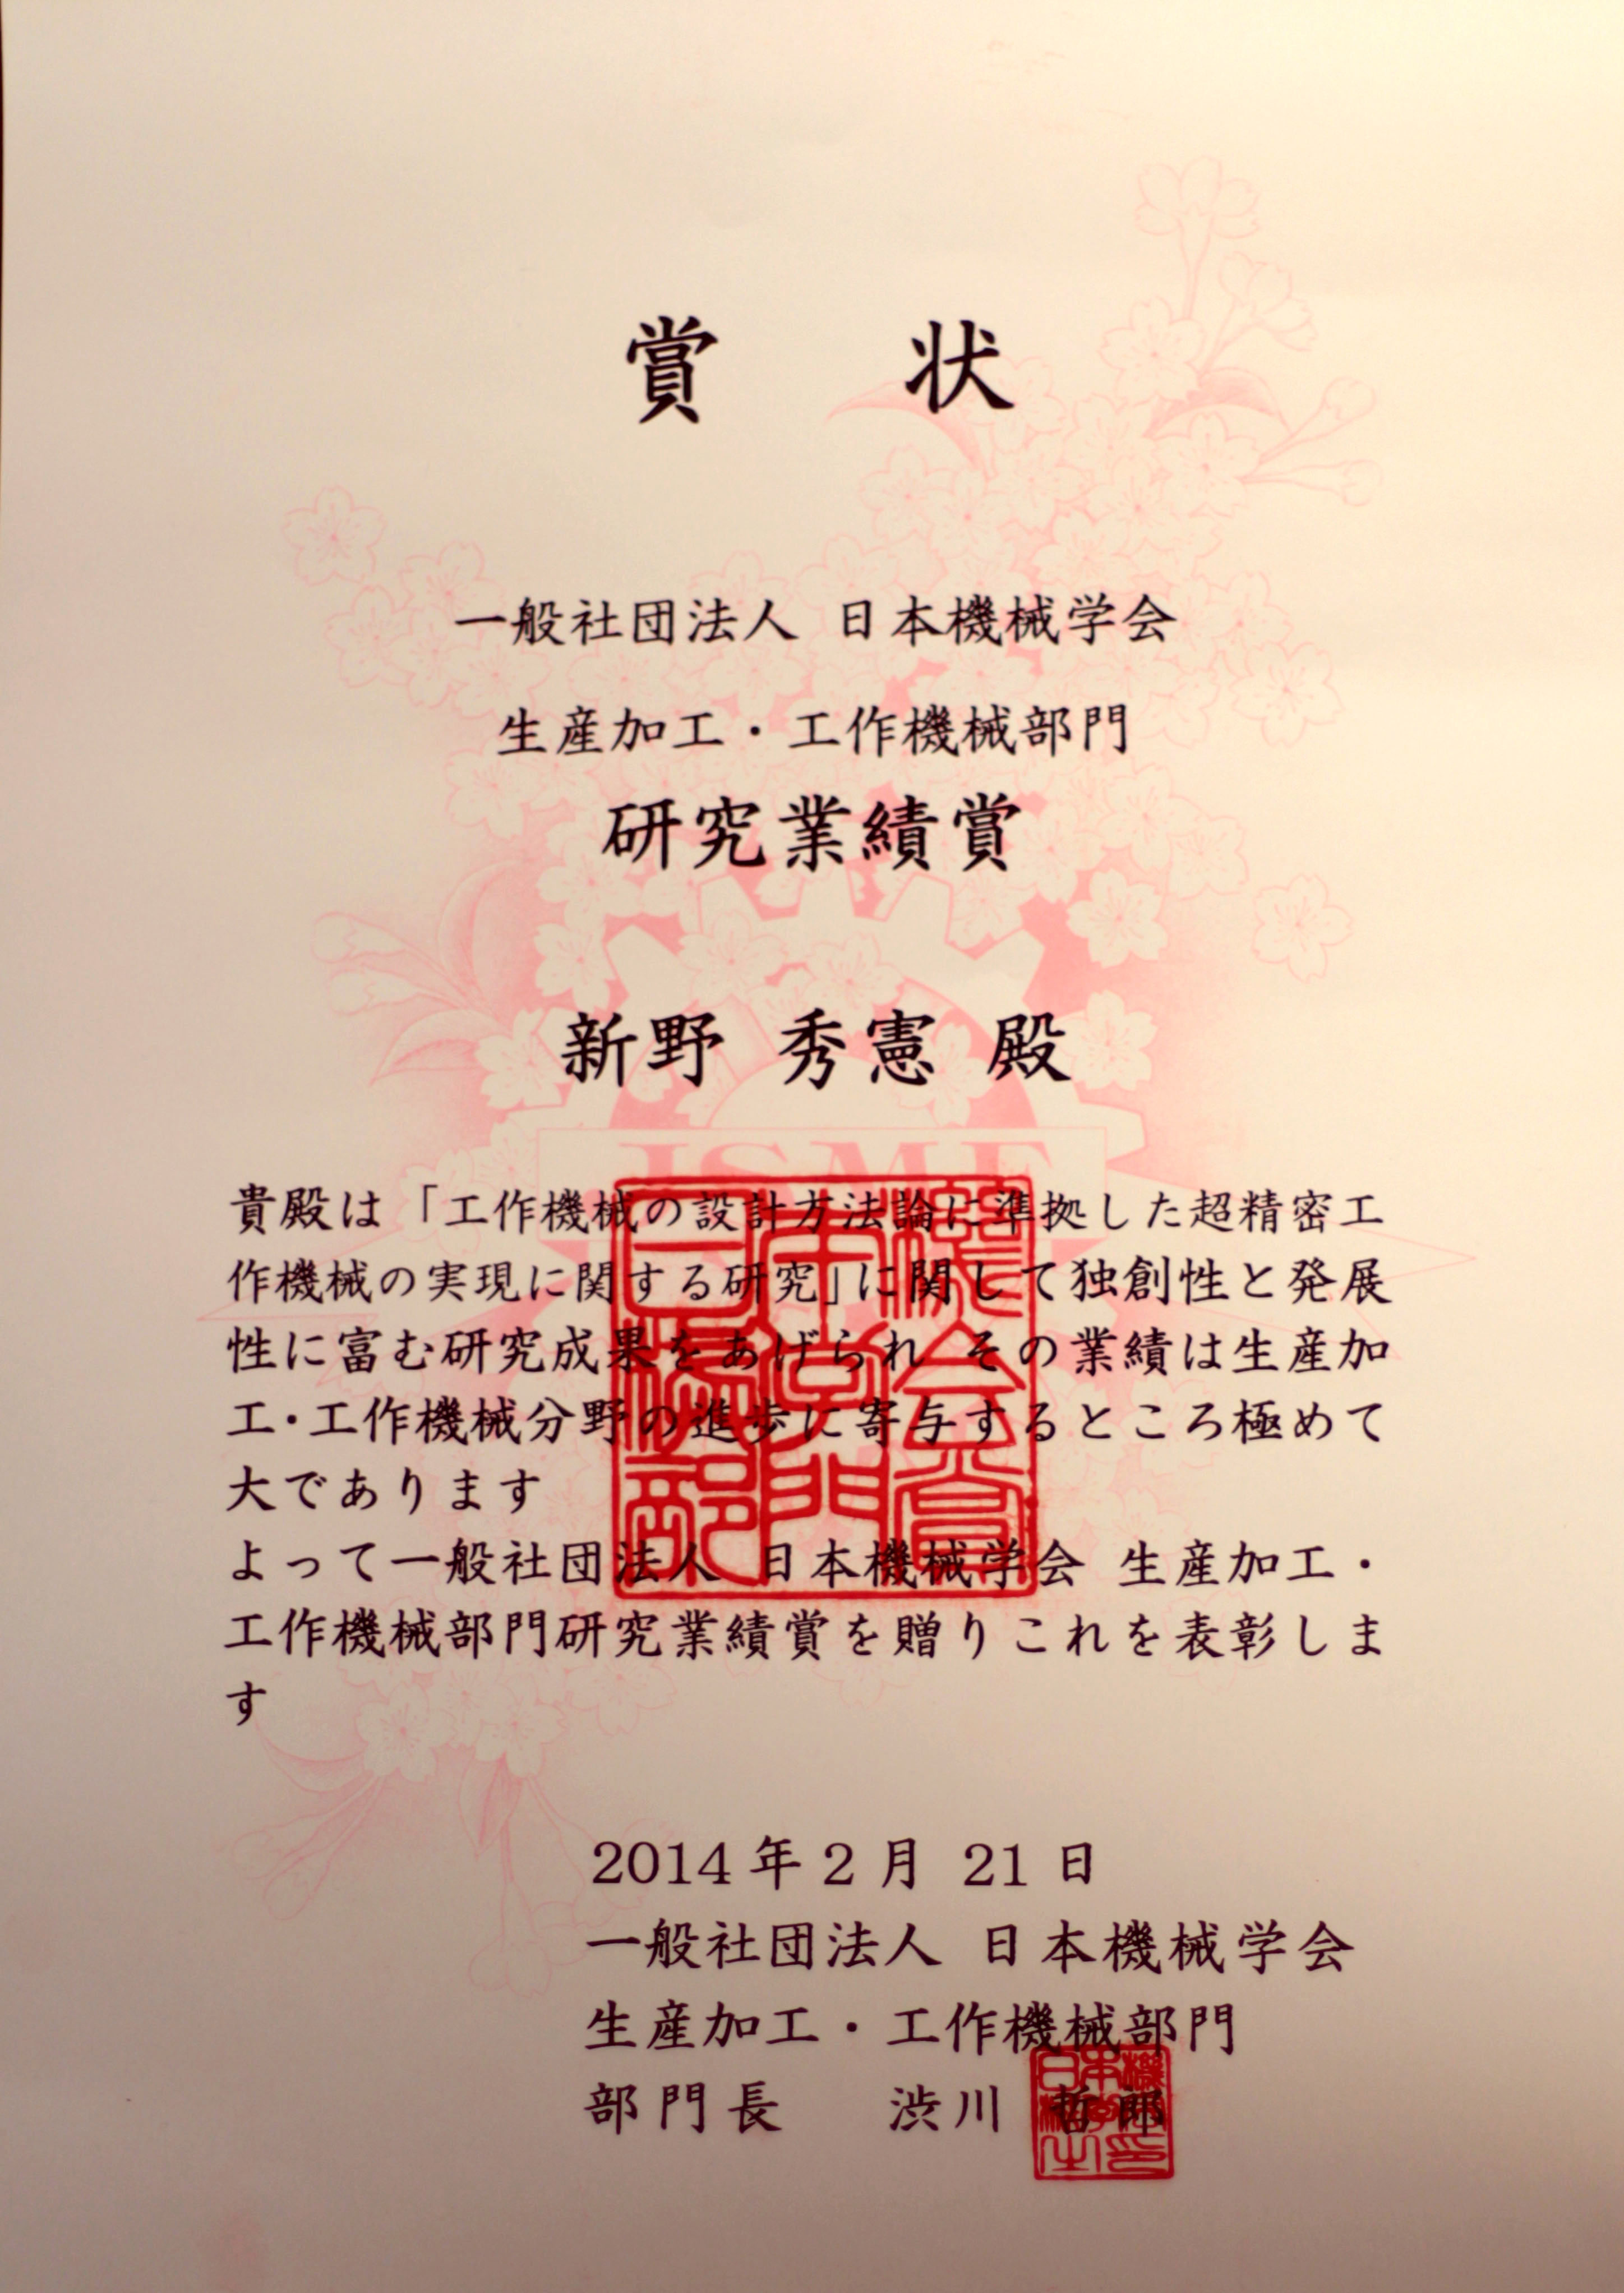 賞 状
一般社団法人 日本機械学会
生産加工・工作機械部門
研究業績賞
新野 秀憲 殿
JSME
貴殿は「工作機械の設計方法論に準拠した超精密工
作機械の実現に関する研究」に関して独創性と発展
性に富む研究成果をあげられ その業績は生産加
工・工作機械分野の進歩に寄与するところ極めて
大であります
よって一般社団法人 日本機械学会 生産加工・
工作機械部門研究業績賞を贈りこれを表彰しま
す
2014年2月 21日
一般社団法人 日本機械学会
生産加工・工作機械部門
部門長 渋川 哲郎